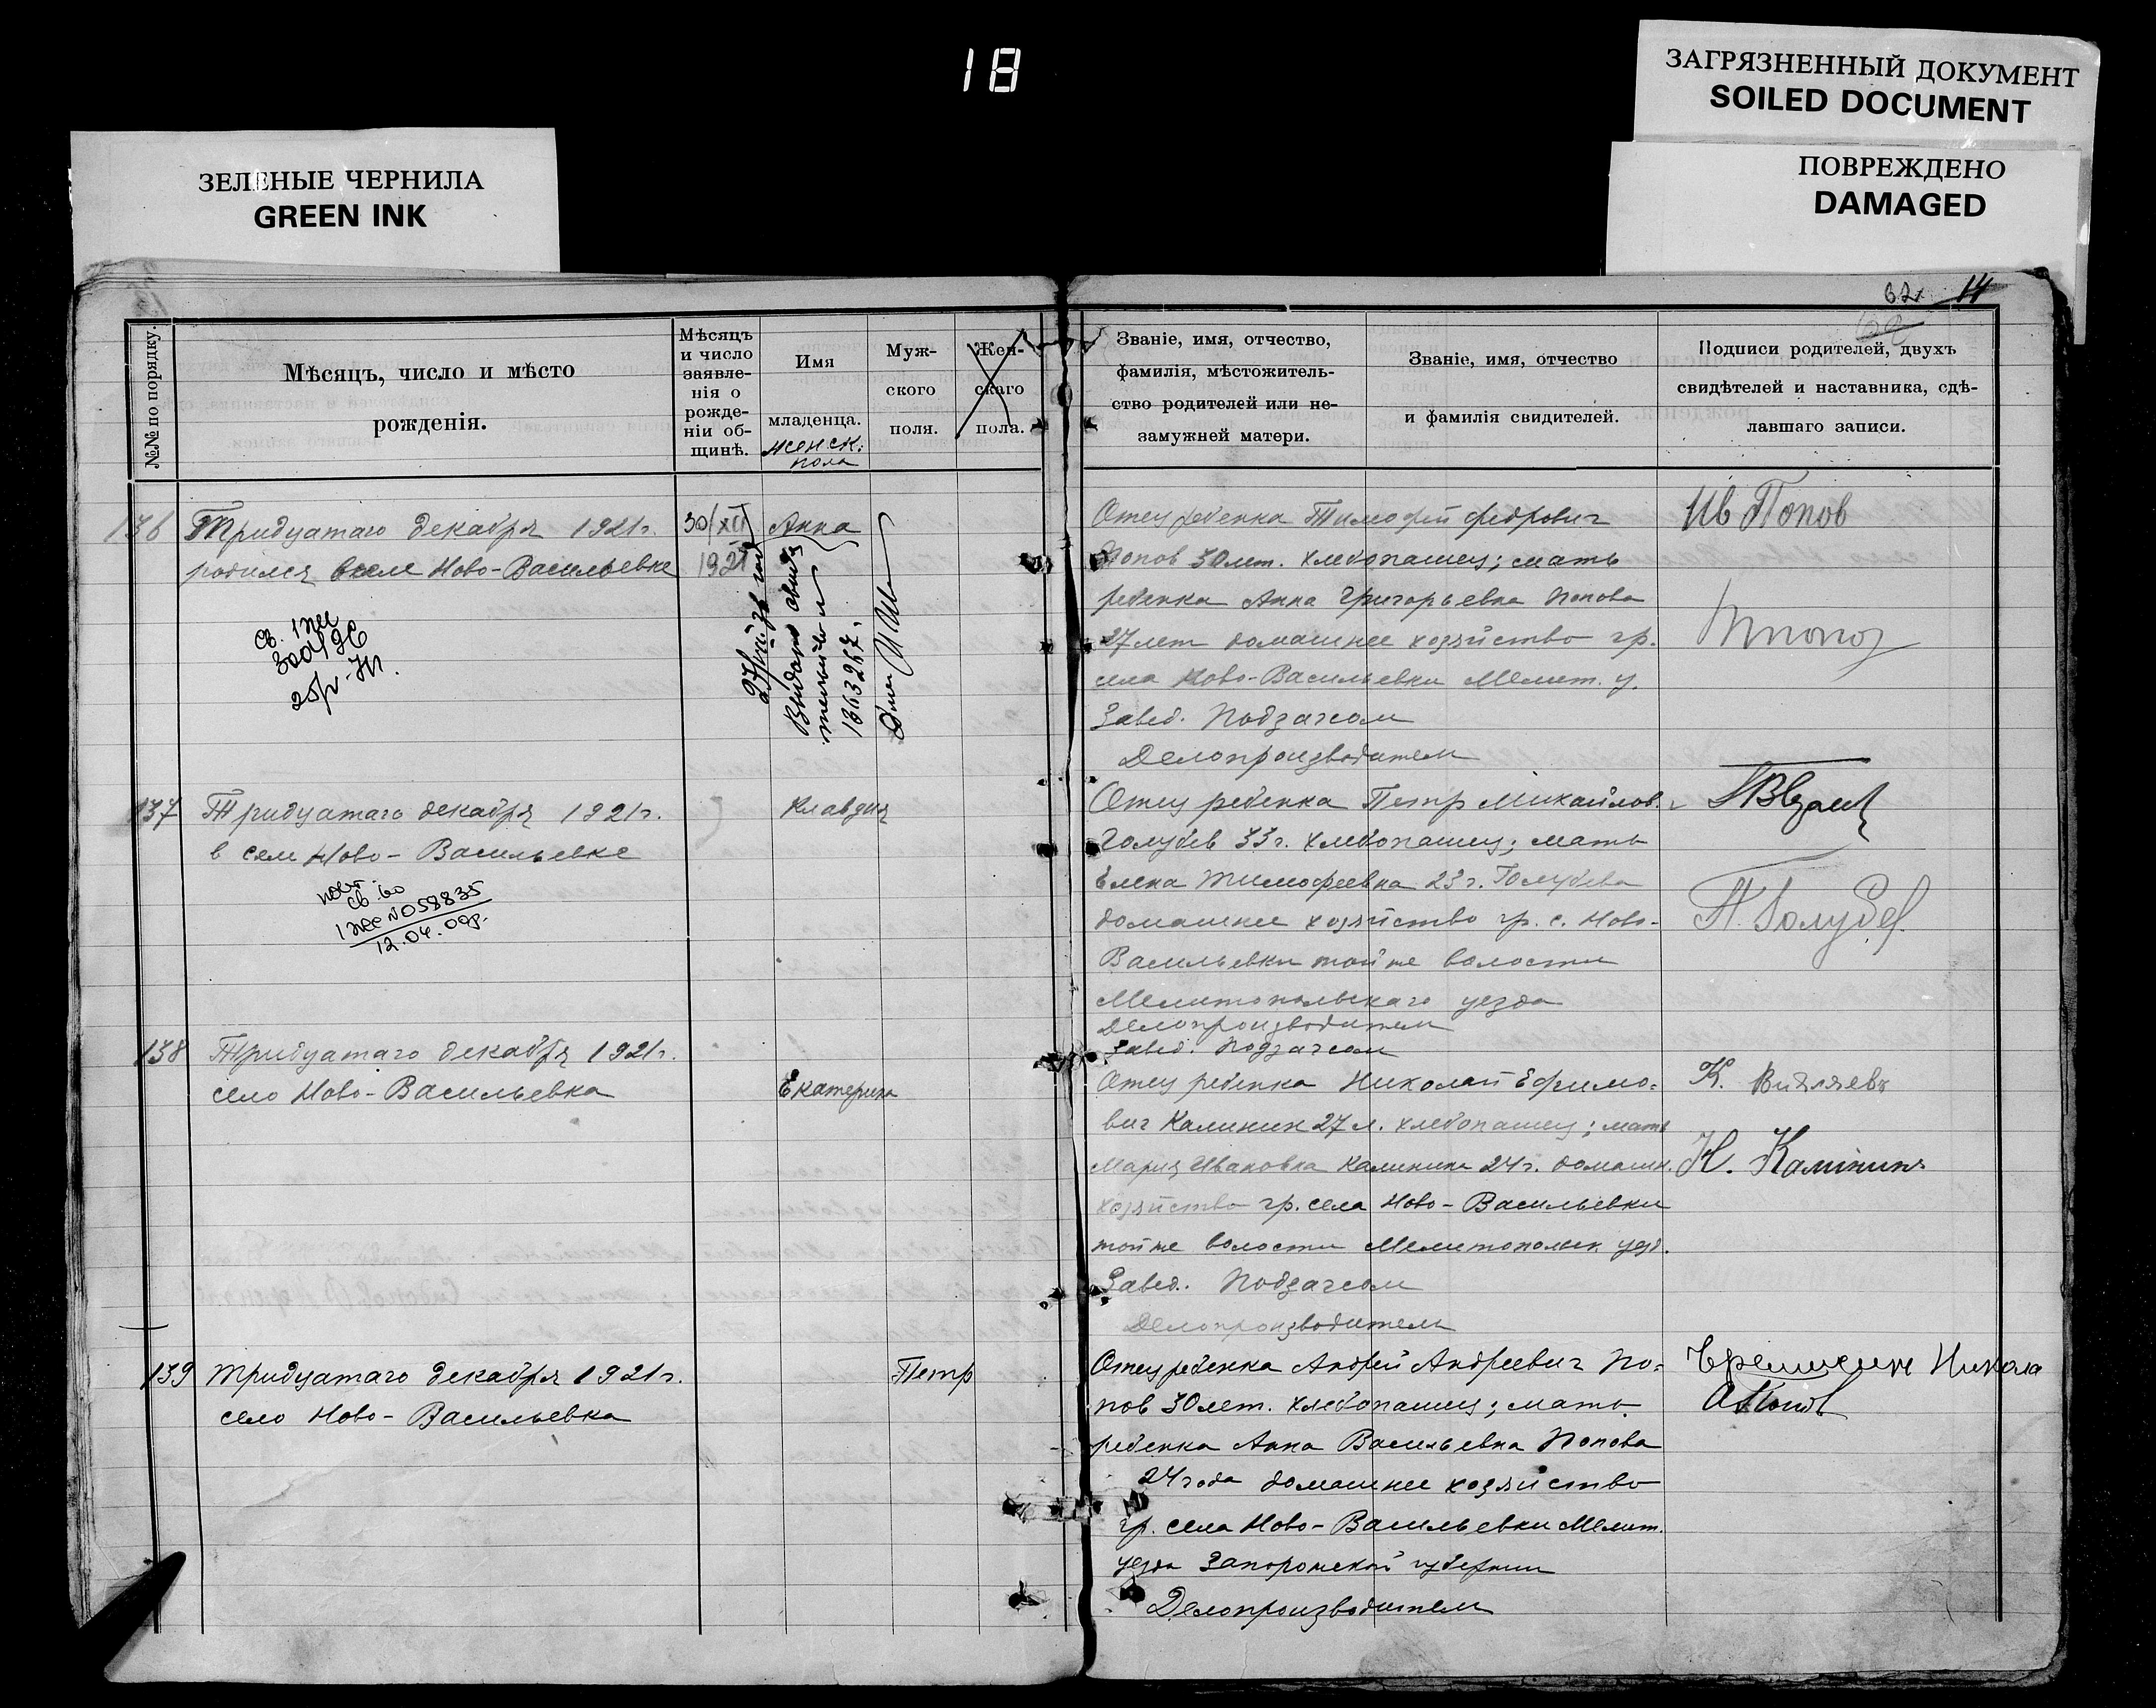 18
ЗАГРЯЗНЕННЫЙ ДОКУМЕНТ
SOILED DOCUMENT
ПОВРЕЖДЕНО
DAMAGED
ЗЕЛЕНЫЕ ЧЕРНИЛА
GREEN INK
14
№№ по порядку.
Мѣсяцъ, число и мѣсто
рожденія.
Мѣсяцъ
и число
заявле-
нія о
рожде-
ніи об-
щинѣ.
Имя
младенца.
женск.
пола
Муж-
ского
поля.
Жен-
скаго
пола.
Званіе, имя, отчество,
фамилія, мѣстожитель-
ство родителей или не-
замужней матери.
Званіе, имя, отчество
и фамилія свидителей.
Подписи родителей, двухъ
свидѣтелей и наставника, сдѣ-
лавшаго записи.
136
Тридцатаго декабря 1921г.
родился в селе Ново-Васильевке
30/XII
1921
Анна
Отец ребенка Тимофей Федрович
Попов 30 лет. хлебопашец; мать
ребенка Анна Григорьевна Попова
27 лет домашнее хозяйство гр.
села Ново-Васильевки Мелит. у.
Завед. Подзагсом
Делопроизводитель
Ив Попов
137
Тридцатаго декабря 1921г.
в селе Ново-Васильевке
№058835
12.04.09р.
Клавдия
Отец ребенка Петр Михайлов.
Голубев 33г. хлебопашец; мать
Елена Тимофеевна 23г. Голубева
домашнее хозяйство гр. с. Ново-
Васильевки той же волости
Мелитопольскаго уезда
Делопроизводитель
Завед. Подзагсом
П. Голубев
138
Тридцатаго декабря 1921г.
село Ново-Васильевка
Екатерина
Отец ребенка Николай Ефимо-
вич Калинин 27 л. хлебопашец; мать
Мария Ивановна Калинина 24г. домашн.
хозяйство гр. села Ново-Васильевки
той же волости Мелитопольск. уезд.
Завед. Подзагсом
Делопроизводитель
К.
Н. Калининъ
139
Тридцатаго декабря 1921г.
село Ново-Васильевка
Петр
Отец ребенка Андрей Андреевич По-
пов 30 лет. хлебопашец; мать
ребенка Анна Васильевна Попова
24 года домашнее хозяйство
гр. села Ново-Васильевки Мелит.
уезда Запорожской губернии
Делопроизводитель
Никола
А Попов